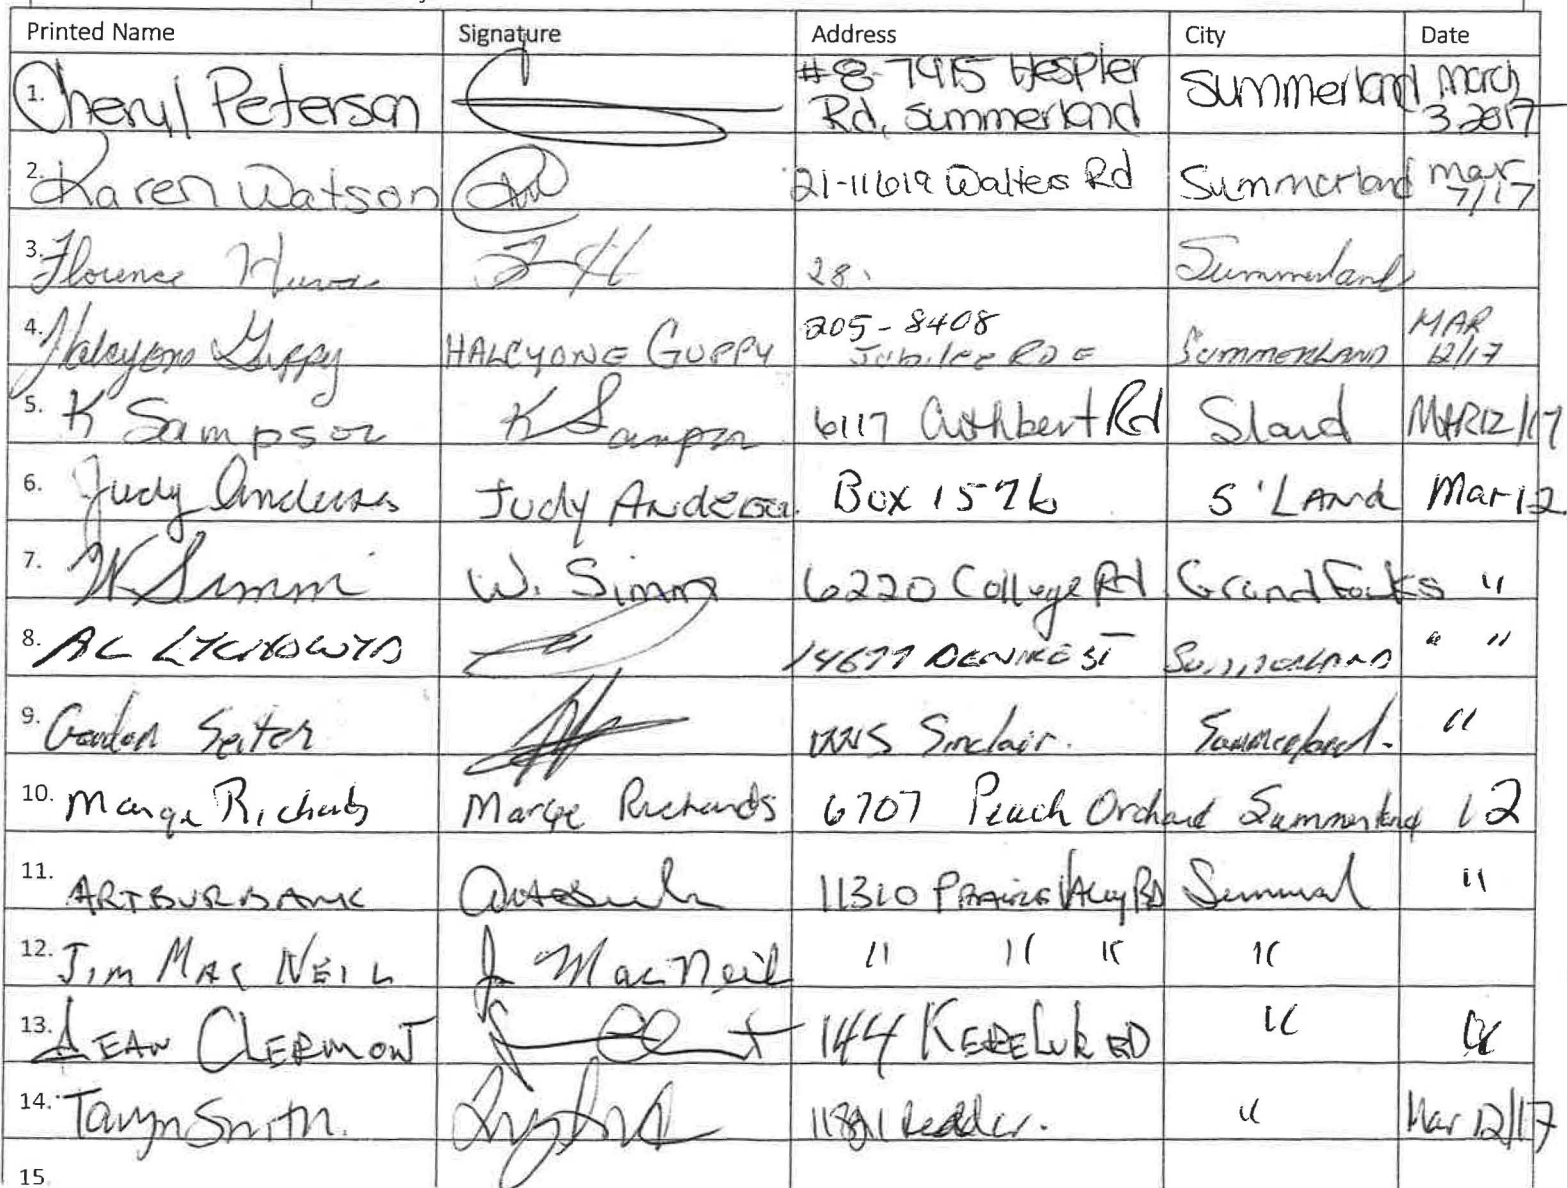 Printed Name Signature Address City Date
1. Cheryl Peterson #8-7915 Hespler Rd, Summerland Summerland March 3 2017
2. Karen Watson 21-11619 Walters Rd Summerland mar 7/17
3. Florence 28 Summerland
4. Halcyone Guppy HALCYONE GUPPY 205-8408 Jubilee RD E SUMMERLAND MAR 12/17
5. K Sampson K Sampson 6117 Cuthbert Rd Sland MAR12/17
6. Judy Anderson Judy Anderson Box 1576 S'LAND Mar 12
7. W Simm W. Simm 6220 College Rd Grand Forks "
8. AC 14677 DENIKE ST SUMMERLAND " "
9. Gordon Seiter Sinclair. Summerland. "
10. Marge Richards Marge Richards 6707 Peach Orchard Summerland 12
11. ART BURBANK 11310 PRAIRIE VAlley RD "
12. JIM MAC NEIL J MacNeil " " " "
13. JEAN CLERMONT 144 KEBELUK RD " "
14. Taryn Smith. " Mar 12/17
15